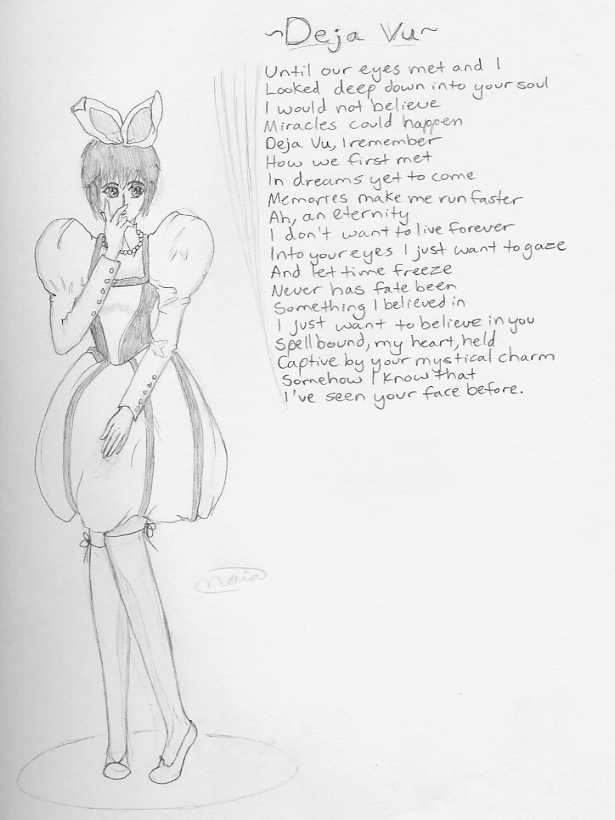 ~Deja Vu~
Until our eyes met and I
Looked deep down into your soul
I would not believe
Miracles could happen
Deja Vu, I remember
How we first met
In dreams yet to come
Memories make me run faster
Ah, an eternity
I don't want to live forever
Into your eyes I just want to gaze
And let time freeze
Never has fate been
Something I believed in
I just want to believe in you
Spellbound, my heart, held
Captive by your mystical charm
Somehow I know that
I've seen your face before.